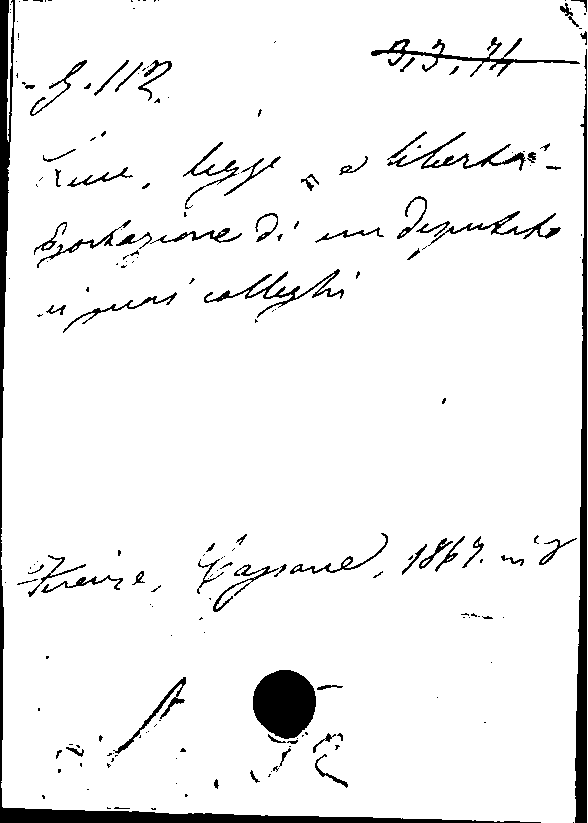 G.112.
3,3,74
Luce, legge e libertà -
Esortazione di un deputato
ai suoi colleghi
Firenze, Cassone, 1867. in 8